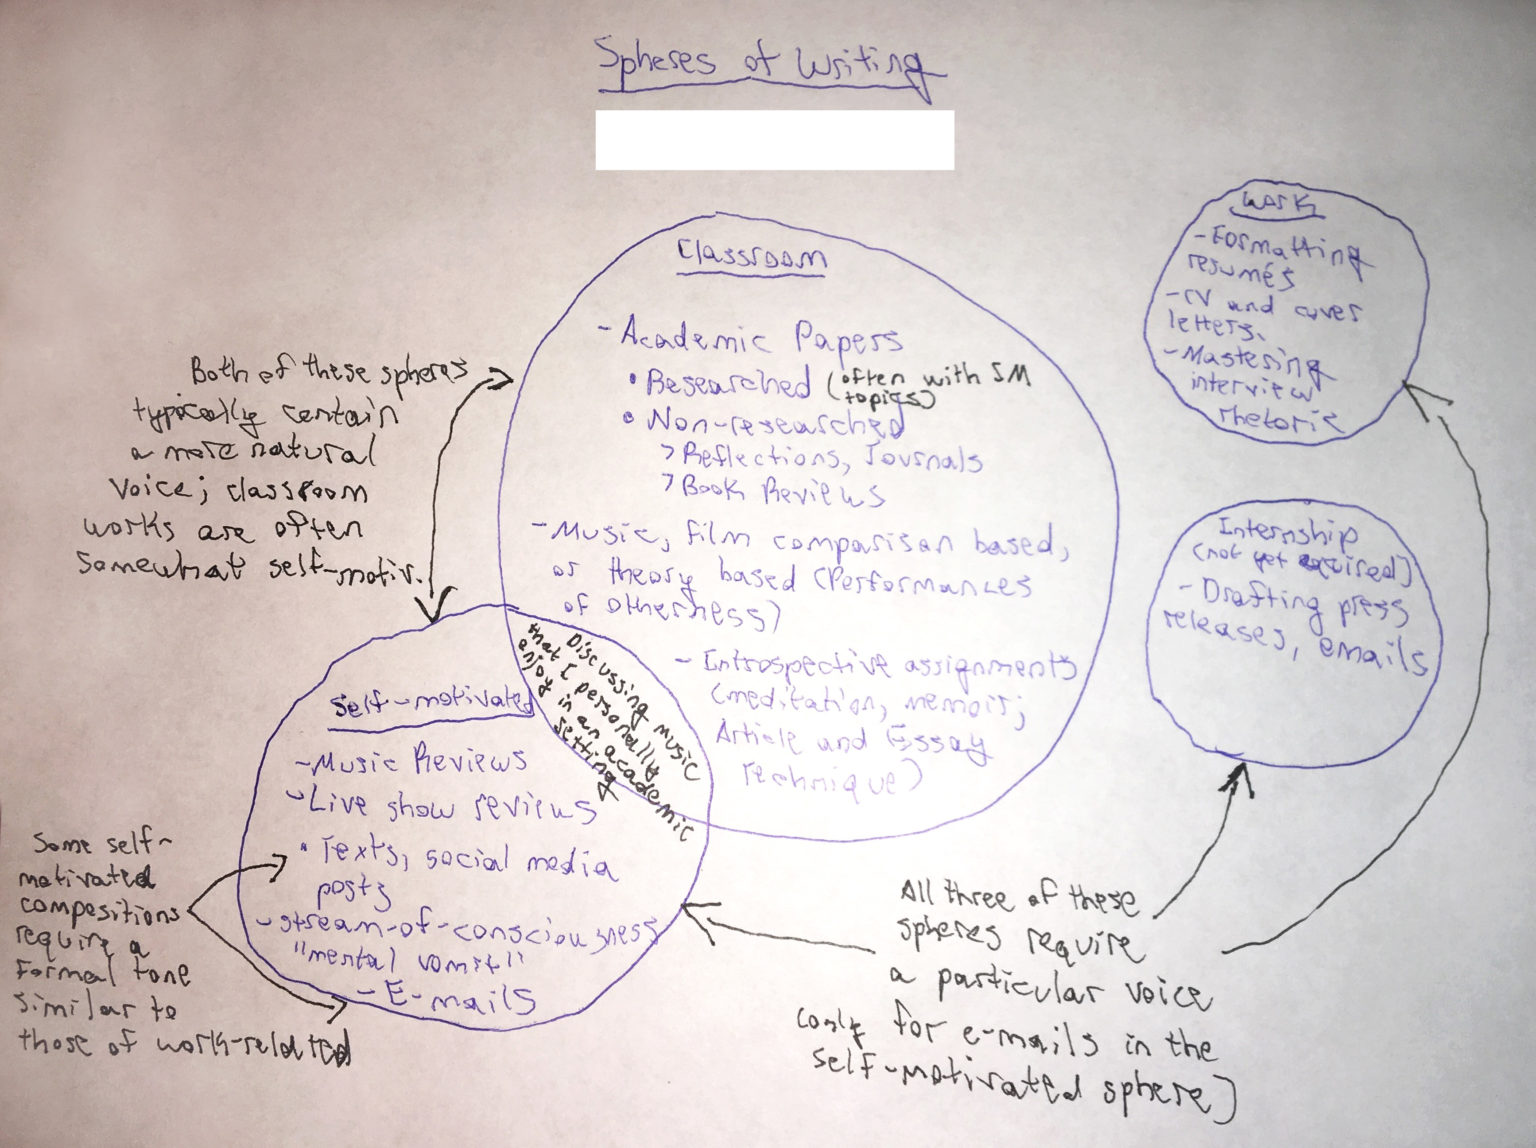 Spheres of Writing
Classroom
- Academic Papers
• Researched (often with SM
topics)
• Non-researched
> Reflections, Journals
> Book Reviews
- Music, film comparison based,
or theory based (Performances
of Otherness)
- Introspective assignments
(meditation, memoir;
Article and Essay
Technique)
Work
- Formatting
resumés
- CV and cover
letters.
- Mastering
interview
rhetoric
Internship
(not yet acquired)
- Drafting press
releases, emails
Both of these spheres
typically contain
a more natural
voice; classroom
works are often
somewhat self-motiv.
Discussing music
that I personally
enjoy in an academic
setting
Self-motivated
- Music Reviews
- Live show reviews
• Texts, social media
posts
- stream-of-consciousness
"mental vomit"
- E-mails
Some self-
motivated
compositions
require a
formal tone
similar to
those of work-related
All three of these
spheres require
a particular voice
(only for e-mails in the
self-motivated sphere)